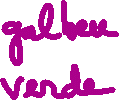 galben
verde